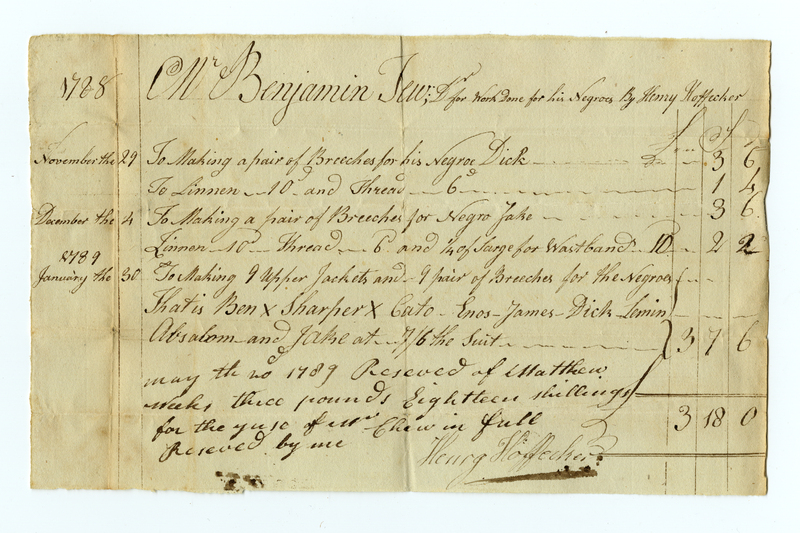 1788 Mr Benjamin Dr for Work Done for his Negroes By Henry Hoffecker
£ S D
November the 29 To Making a pair of Breeches for his Negroe Dick 3 6
To Linnen 10d and Thread 6d 1 4
December the 4 To Making a pair of Breeches for Negro Jake 3 6
Linnen 10d Thread 6d and 1/4 of Sarge for Wastband 10d 2 2
1789
January the 30 To Making 9 Upper Jackets and 9 pair of Breeches for the Negroes
That is Ben X Sharper X Cato Enos James Dick Lemin
Absalom and Jake at 7/6 the Suit 3 7 6
may th 20d 1789 Reseved of Matthew
Weeks three pounds Eighteen shillings
for the yuse of Mr Chew in full 3 18 0
Reseved by me
Henry Hoffecker